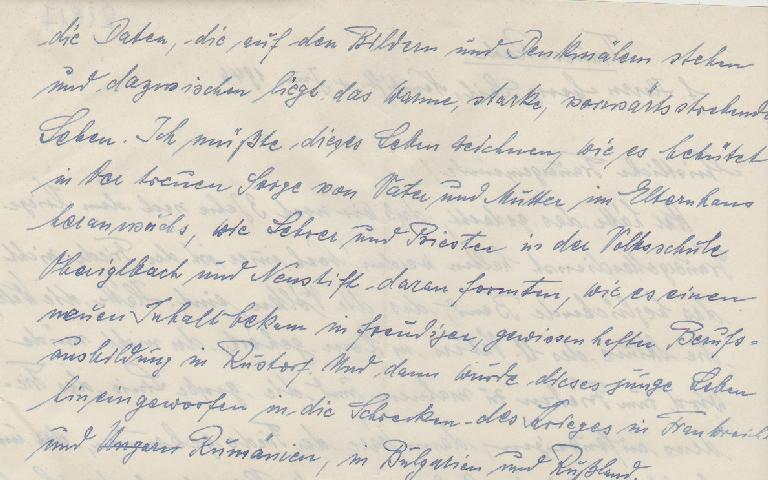 die Daten, die auf den Bildern und Denkmälern stehen
und dazwischen liegt das warme, starke, vorwärtsstrebende
Leben. Ich müßte dieses Leben zeichnen, wie es behütet
in der treuen Sorge von Vater und Mutter im Elternhaus
heranwuchs, wie Lehrer und Priester in der Volksschule
Oberiglbach und Neustift daran formten, wie es einen
neuen Inhalt bekam in freudiger, gewissenhafter Berufs-
ausbildung in Rustorf. Und dann wurde dieses junge Leben
hineingeworfen in die Schrecken des Krieges in Frankreich
und Ungarn Rumänien, in Bulgarien und Rußland.